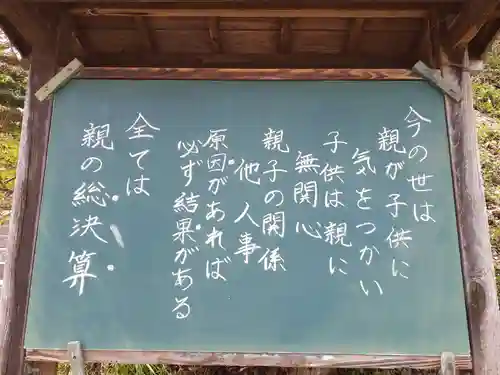 今の世は
親が子供に
気をつかい
子供は親に
無関心
親子の関係
他人事
原因があれば
必ず結果がある
全ては
親の総決算